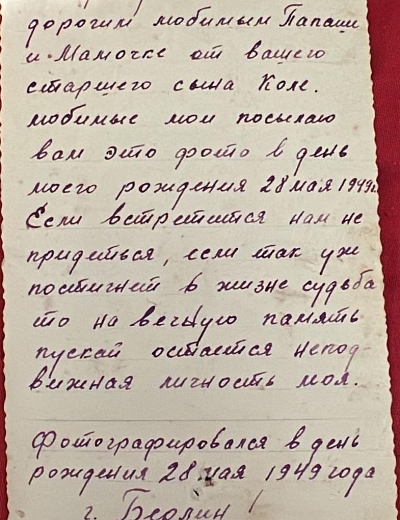 дорогим любимым Папаши
и Мамочке от вашего
старшего сына Коле.
любимые мои посылаю
вам это фото в день
моего рождения 28 мая 1949г.
Если встретится нам не
придеться, если так уж
постигнет в жизне судьба
то на вечную память
пускай остается непод-
вижная личность моя.
Фотографировался в день
рождения 28 мая 1949 года
г. Берлин